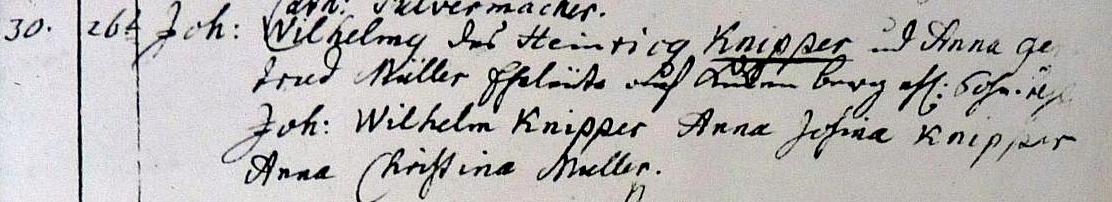 Cath: Pulvermacher.
30. 26t Joh: Wilhelmg des Heinricg Knipper und Anna Ge
trud Müller Eheleüte auf berg ehl: Sohn.
Joh: Wilhelm Knipper Anna Josina Knipper
Anna Christina Muller.